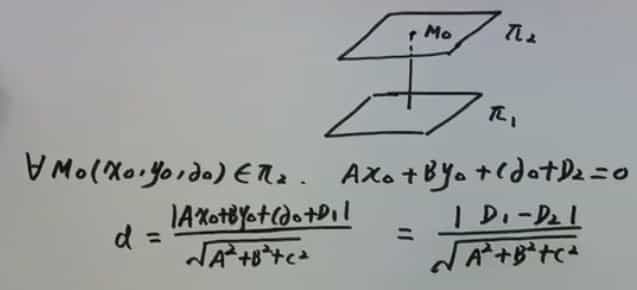 M₀ π₂
π₁
∀ M₀(x₀, y₀, z₀) ∈ π₂. Ax₀ + By₀ + Cz₀ + D₂ = 0
d = |Ax₀+By₀+Cz₀+D₁| / √(A²+B²+C²) = | D₁ - D₂ | / √(A²+B²+C²)